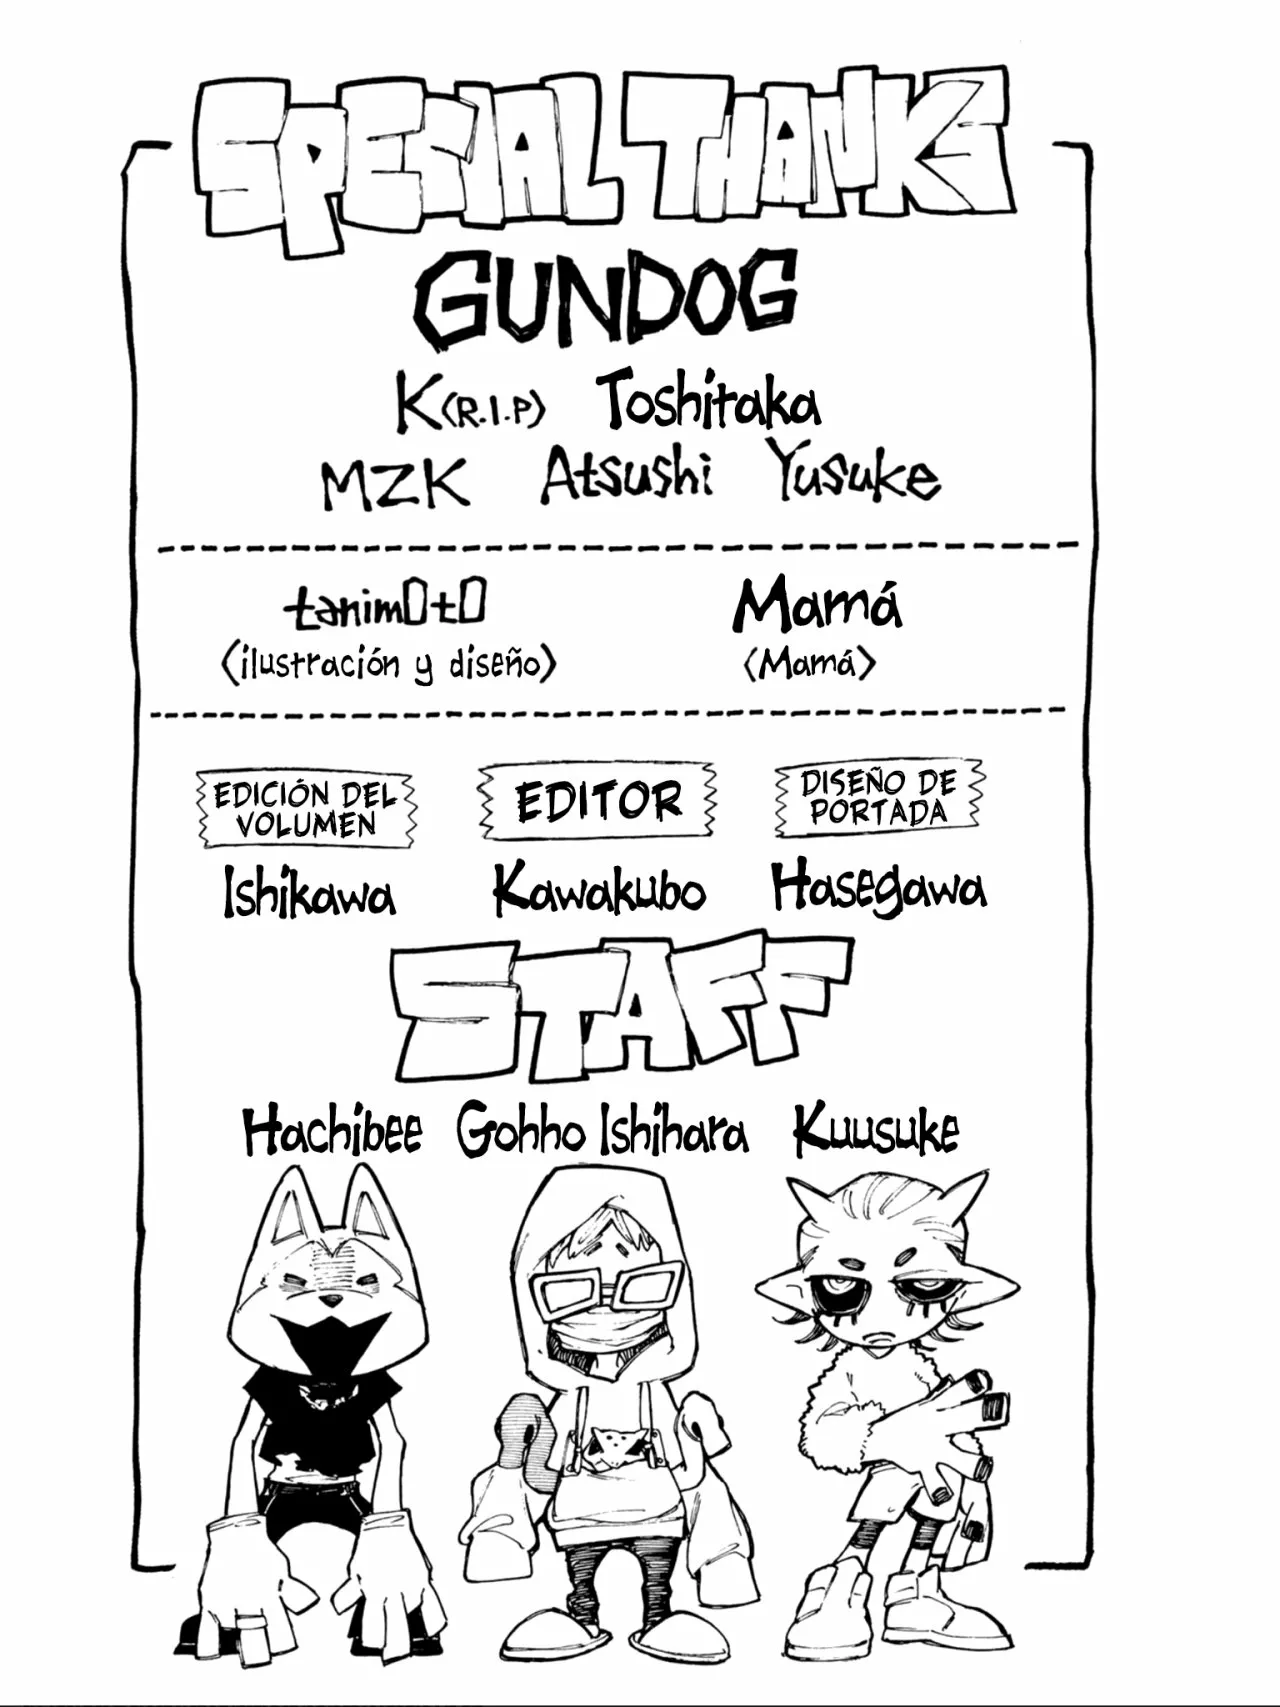 SPECIAL THANKS
GUNDOG
K(R.I.P) Toshitaka
MZK Atsushi Yusuke
tanim0t0 Mamá
(ilustración y diseño) (Mamá)
EDICIÓN DEL VOLUMEN
EDITOR
DISEÑO DE PORTADA
Ishikawa Kawakubo Hasegawa
STAFF
Hachibee Gohho Ishihara Kuusuke